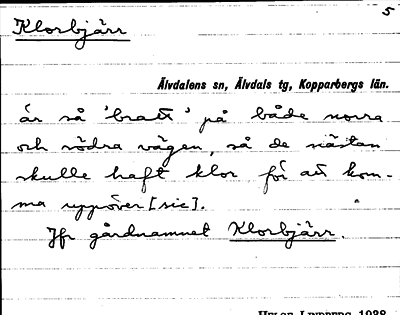 5
Klorbjärr
Älvdalens sn, Älvdals tg, Kopparbergs län.
är så 'brant' på både norra
och södra vägen, så de nästan
skulle haft klor för att kom-
ma uppöver [sic].
Jfr gårdnamnet Klorbjärr.